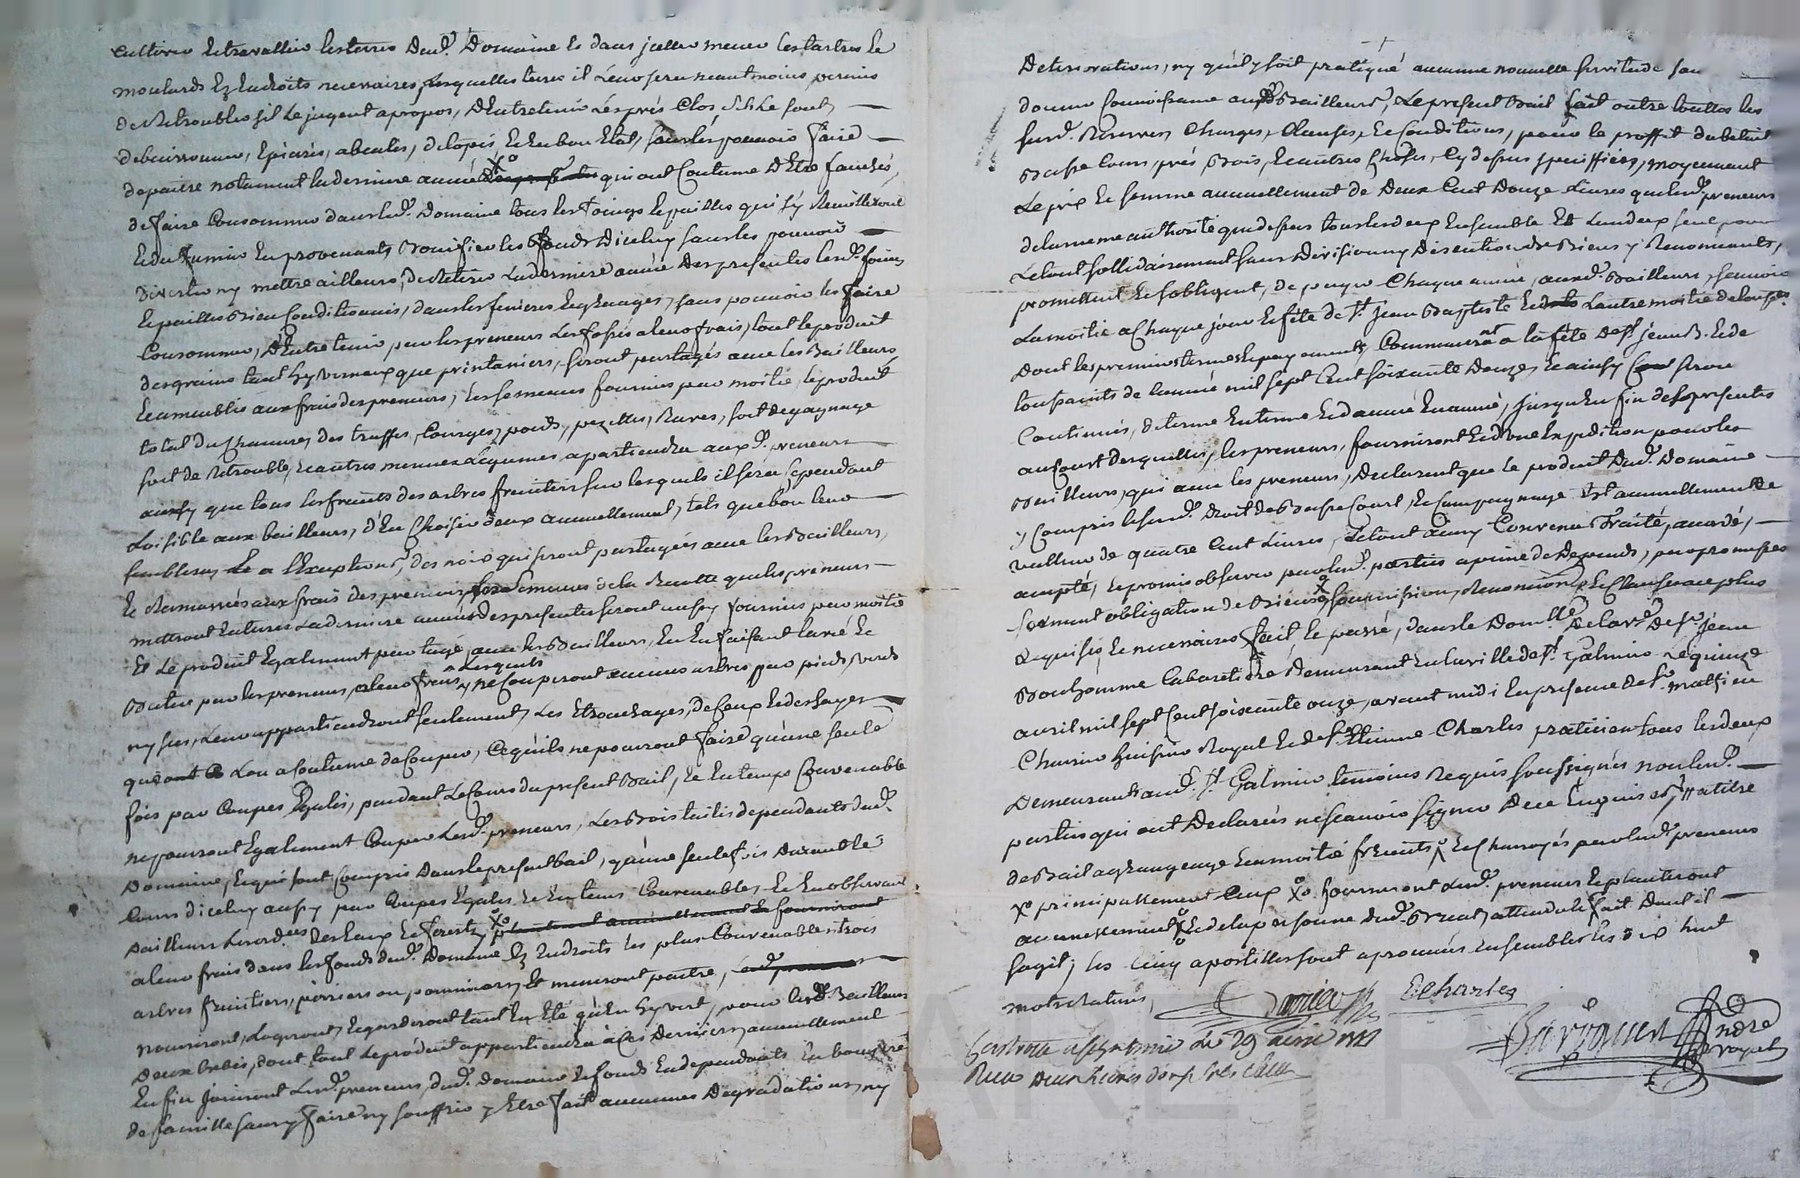 Cultiver et travailler les terres dud.t Domaine et dans jcelles mener les tartres et
moulards Ez Endroits necessaires, Lesquelles terres il Leur sera neantmoins permis
de Retroubler sil Le jugent apropos, D'Entretenir Les prés Clos,
debuissonner, Epierrés, abealés, de topés, Et En bon Etat, sans les pouvoir faire
depaitre notament la derniere année qui ont Coutume D'Etre fauchés,
de faire Consommer dans led.t Domaine tous les foings et pailles qui s'y Recuilliront
Et du fumier En provenant, Bonifier les fonds D'iceluy sans les pouvoir
Divertir ny mettre ailleurs, de Retirer La derniere année Des presentes Lesd.ts foins
Et pailles Bien Conditionnés, dans les fenieres Et granges, sans pouvoir les faire
Consommer, D'Entretenir par les preneurs Les fossés a leur frais, tout le produit
des grains tant hyvernaux que printaniers, seront partagés avec les Bailleurs
aux frais des preneurs, Les semences fournies par moitié, le produit
total du Chanvre, des truffes, Courges, poids, pezettes, Raves, soit de gaignage
soit de Retrouble, Et autres menues Légumes apartiendra aux d.ts preneurs
ainsy que tous les fruits des arbres fruitiers sur lesquels il sera Cependant
Loisible aux bailleurs, d'En Choisir deux annuellement, tels que bon leur
semblera, a l'Exception, des noix qui seront partagées avec les Bailleurs,
Et Ramassées aux frais des preneurs, Les semences de la Recolte que les preneurs
mettront En terres La derniere année des presentes seront aussy fournies par moitié
Et Le produit Egalement partagé, avec les Bailleurs, En En faisant
Battre par les preneurs, a leur frais, Lesquels ny Couperont aucuns arbres par pieds, verds
ny secs, Leur appartiendront seulement, Les Ebranchages, de Ceux
que Lon a Coutume de Couper, Ce qu'ils ne pourront faire qu'une seule
fois par Coupes Egales, pendant Le Cours du present Bail, Et En temps Convenable
ne pourront Egalement Couper Lesd.ts preneurs, Les Bois taillis dependants dud.t
Domaine, Et qui sont Compris Dans le present bail, qu'une seule fois Durant le
Cours d'iceluy aussy par Coupes Egales Et En tems Convenables, Et En observant
D'ailleurs Les ord.ces Des Eaux Et forets, Xo plantront annuellement Et fourniront
a leur frais dans les fonds dud.t Domaine Ez Endroits les plus Convenables trois
arbres fruitiers, poiriers ou pommiers, Et meneront paitre,
nourriront, Logeront, Et garderont tant En Eté qu'En hyvert, pour lesd.ts Bailleurs
Deux brebis, dont tout Le produit appartiendra à Ces Derniers, annuellement
Enfin jouiront Lesd.ts preneurs, dud.t Domaine Et fonds En dependants En bon pere
de famille sans y faire ny souffrir y Etre fait aucunes Degradations, ny
Deteriorations, ny qu'il y soit pratiqué aucune nouvelle servitude sans
donner Connoissance auxd.ts Bailleurs, Le present Bail fait outre touttes les
susd.tes Reserves Charges, Clauses, Et Conditions, pour le proffit du betail
Basse Cour, prés Bois, Et autres Choses, Cy dessus speciffiées, moyennant
Le prix Et somme annuellement de Deux Cent Douze Livres que lesd.ts preneurs
de la meme authorité que dessus tous les deux Ensemble Et L'un d'eux seul pour
Le tout sollidairement sans Division ny Discution de Biens y Renonceants,
promettent Et s'obligent, de payer Chaque année, auxd.ts Bailleurs, sçavoir
La moitié a Chaque jour Et fête de S.t Jean Baptiste Et L'autre moitié de
Dont les premiers termes Et payements Commencera a la fête de S.t Jean B. Et de
toussaints de L'année mil sept Cent soixante Douze, Et ainsy sera
Continué, de terme En terme Et d'année En année, jusqu'En fin des presentes
au Cour desquelles, les preneurs, fourniront Une Expedition pour les
Bailleurs, qui avec les preneurs, Declarent que le produit Dud.t Domaine
y Compris lesusd.t Droit de Basse Cour, Et Compagnage Est annuellement de
valleur de quatre Cent Livres, Le tout ainsy Convenu, Traité, accordé,
accepté, Et promis observer par lesd.tes parties a peine de Depends, par promesses
serment obligation de Biens soumission, Renonciation Et Clauses au plus
Requises Et necessaires, fait Et passé, dans le Dom.lle De la v.e De s.r Jean
Bonhomme Cabaretiere Demeurant En la ville de S.t Galmier le quinze
avril mil sept Cent soixante onze, avant midi En presence de S.r mathieu
Charvin huissier Royal Et de S.r Etienne Charles praticien tous les deux
Demeurants aud.t S.t Galmier temoins Requis soussignés non lesd.tes
parties qui ont Declarées ne sçavoir signer De ce Enquises,
de Bail a grangeage Et a moitié fruits, Et Charroyés par lesd.ts preneurs
Xo principallement Ceux Xo fourniront Lesd.ts preneurs Et planteront
annuellement Et de la personne Dud.t attendu le fait Dont il
s'agit, les Cinq apostilles sont aprouvées Ensembles les dix huit
mots Raturés,
E Charles
André
Controllé a S.t Galmier Le 29 avril 1771
Reçu